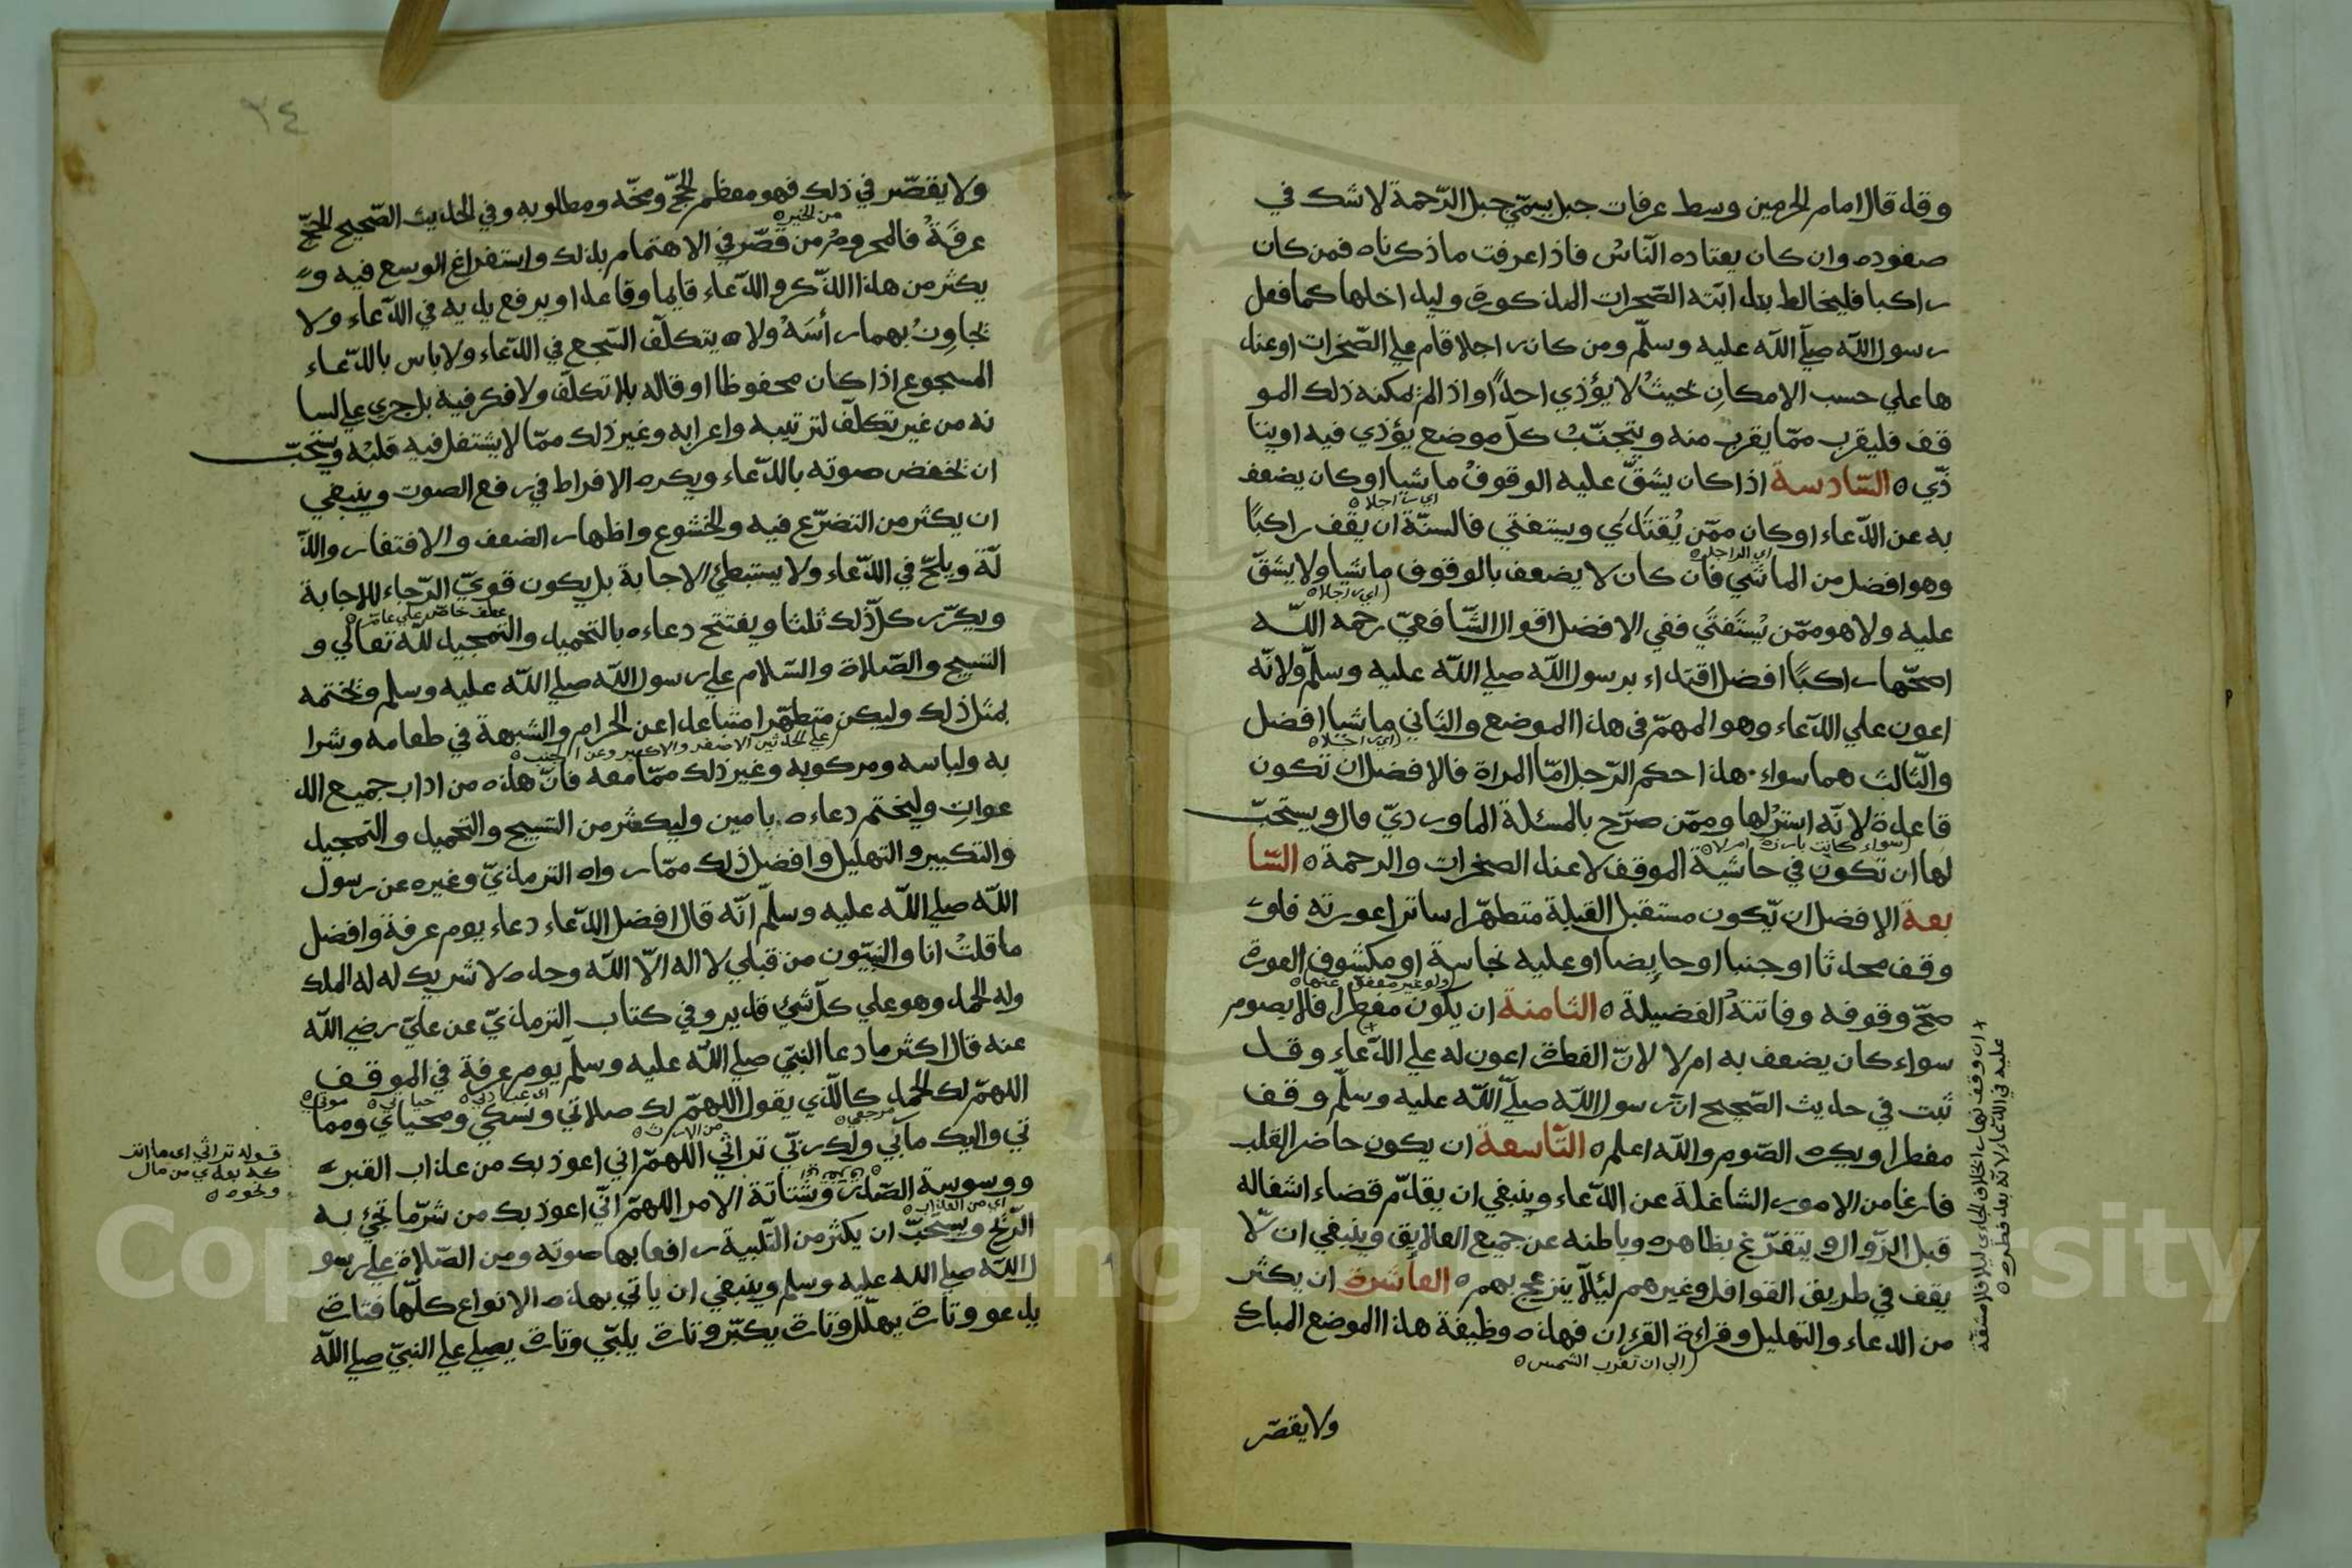 وقد قال امام الحرمين وسط عرفات جبل يسمّي جبل الرّحمة لا شك في
صعوده وان كان يعتاده النّاس فاذا عرفت ما ذكرناه فمن كان
راكبا فليخالط بدابّته الصّخرات المذكورة وليداخلها كما فعل
رسول اللّه صلّي اللّه عليه وسلّم ومن كان راجلا قام علي الصّخرات او عند
ها علي حسب الامكان بحيث لا يؤذي احدًا واذا لم يمكنه ذلك المو
قف فليقرب ممّا يقرب منه ويتجنّب كلّ موضع يؤذي فيه او يتا
ذّي ٥ السّادسة اذا كان يشقّ عليه الوقوف ماشيا او كان يضعف
اي راجلا ٥
به عن الدّعاء او كان ممّن يُقتَدَي ويستفتي فالسنّة ان يقف راكبًا
اي الراجل ٥
وهو افضل من الماشي فان كان لا يضعف بالوقوف ماشيا ولا يشقّ
اي راجلا ٥
عليه ولا هو ممّن يُستَفتَي ففي الافضل اقوال الشّافعيّ رحمه اللّه
اصحّها راكبًا افضل اقتداء برسول اللّه صلي اللّه عليه وسلّم ولانّه
اعون علي الدّعاء وهو المهمّ في هذا الموضع والثاني ماشيا افضل
اي راجلا ٥
والثّالث هما سواء هذا حكم الرّجل امّا المراة فالافضل ان تكون
قاعدة لانّه استر لها وممّن صرّح بالمسئلة الماورديّ قال ويستحبّ
سواء كانت بارزة ام لا ٥
لها ان تكون في حاشية الموقف لا عند الصخرات والرحمة ٥ السّا
بعة الافضل ان يّكون مستقبل القبلة متطهّرا ساترا عورته فلو
وقف محدثا او جنبا او حايضا او عليه نجاسة او مكشوف العورة
ولو غير معفوّ عنها ٥
صحّ وقوفه وفاتته الفضيلة ٥ الثامنة ان يكون مفطرا فلا يصوم
سواء كان يضعف به ام لا لانّ الفطرة اعون له علي الدّعاء وقد
ثبت في حديث الصّحيح انّ رسول اللّه صلّي اللّه عليه وسلّم وقف
مفطرا ويكره الصّوم واللّه اعلم ٥ التّاسعة ان يكون حاضر القلب
فارغا من الامور الشاغلة عن الدّعاء وينبغي ان يقدّم قضاء اشغاله
قبل الزّوال ويتفرّغ بظاهره وباطنه عن جميع العلايق وينبغي ان لّا
يقف في طريق القوافل وغيرهم ليُلّا ينزعج بهم ٥ العاشرة ان يكثر
من الدعاء والتهليل وقراءة القرءان فهذه وظيفة هذا الموضع المبارك
الي ان تغرب الشمس ٥
ولا يقصّر
ان وقف نهارا بخلاف الجاءي ليلا فلا مشقّة
عليه في الدّعاء لانّه بعد فطره ٥
٣٤
ولا يقصّر في ذلك فهو معظم الحجّ ومخّه ومطلوبه وفي الحديث الصّحيح الحجّ
من الخير ٥
عرفَةُ فالمحروم من قصّر في الاهتمام بذلك واستفراغ الوسع فيه و
يكثر من هذا الذّكر والدّعاء قايما وقاعدا ويرفع يديه في الدّعاء ولا
يجاوِزُ بهما رأسَهُ ولا يتكلّف السّجع في الدّعاء ولا باس بالدّعاء
المسجوع اذا كان محفوظا او قاله بلا تكلّف ولا فكر فيه بل جري علي لسا
نه من غير تكلّف لترتيبه واعرابه وغير ذلك ممّا لا يشتغل فيه قلبُه ويستحبّ
ان يخفض صوته بالدّعاء ويكره الافراط في رفع الصوت وينبغي
ان يكثر من التضرّع فيه والخشوع واظهار الضعف والافتقار والذّ
لّة ويلحّ في الدّعاء ولا يستبطئ الاجابة بل يكون قويّ الرّجاء للاجابة
عطف خاصّ علي عامّ ٥
ويكرّر كلّ ذلك ثلثا ويفتتح دعاءه بالتحميد والتمجيد للّه تعالي و
التسبيح والصّلاة والسّلام علي رسول اللّه صلي اللّه عليه وسلم ويختمه
بمثل ذلك وليكن متطهّرا متباعدا عن الحرام والشبهة في طعامه وشرا
علي الحدثين الاصغر والاكبر وعن
به ولباسه ومركوبه وغير ذلك ممّا معه فانّ هذه من اداب جميع الد
عوات وليختم دعاءه بامين وليكثر من التسبيح والتحميد والتمجيد
والتكبير والتهليل وافضل ذلك ممّا رواه الترمذيّ وغيره عن رسول
اللّه صلي اللّه عليه وسلّم انّه قال افضل الدّعاء دعاء يوم عرفة وافضل
ما قلتُ انا والنبيّون من قبلي لا اله الّا اللّه وحده لا شريك له له الملك
وله الحمد وهو علي كلّ شئ قدير وفي كتاب الترمذيّ عن عليّ رضي اللّه
عنه قال اكثر ما دعا النبيّ صلي اللّه عليه وسلّم يوم عرفة في الموقف
اللهمّ لك الحمد كالّذي يقول اللهمّ لك صلاتي ونسكي ومحياي ومما
اي عبادتي ٥ حياتي ٥ موتي ٥
مرجعي ٥
تي واليك مآبي ولك ربّي تراثي اللهمّ اني اعوذ بك من عذاب القبر
من الارث ٥
ووسوسة الصّدر وشتاتة الامر اللهمّ انّي اعوذ بك من شرّ ما تجئ به
اي من العذاب ٥
الرّيح ويستحبّ ان يكثر من التّلبية رافعا بها صوته ومن الصّلاة علي رسو
ل اللّه صلي الله عليه وسلم وينبغي ان ياتي بهذه الانواع كلّها فتارة
يدعو وتارة يهلّل وتارة يكبّر وتارة يلبّي وتارة يصلي علي النبيّ صلي اللّه
قوله تراثي اي ما اتر
كه بعدي من مال
ونحوه ٥
Copyright © King Saud University